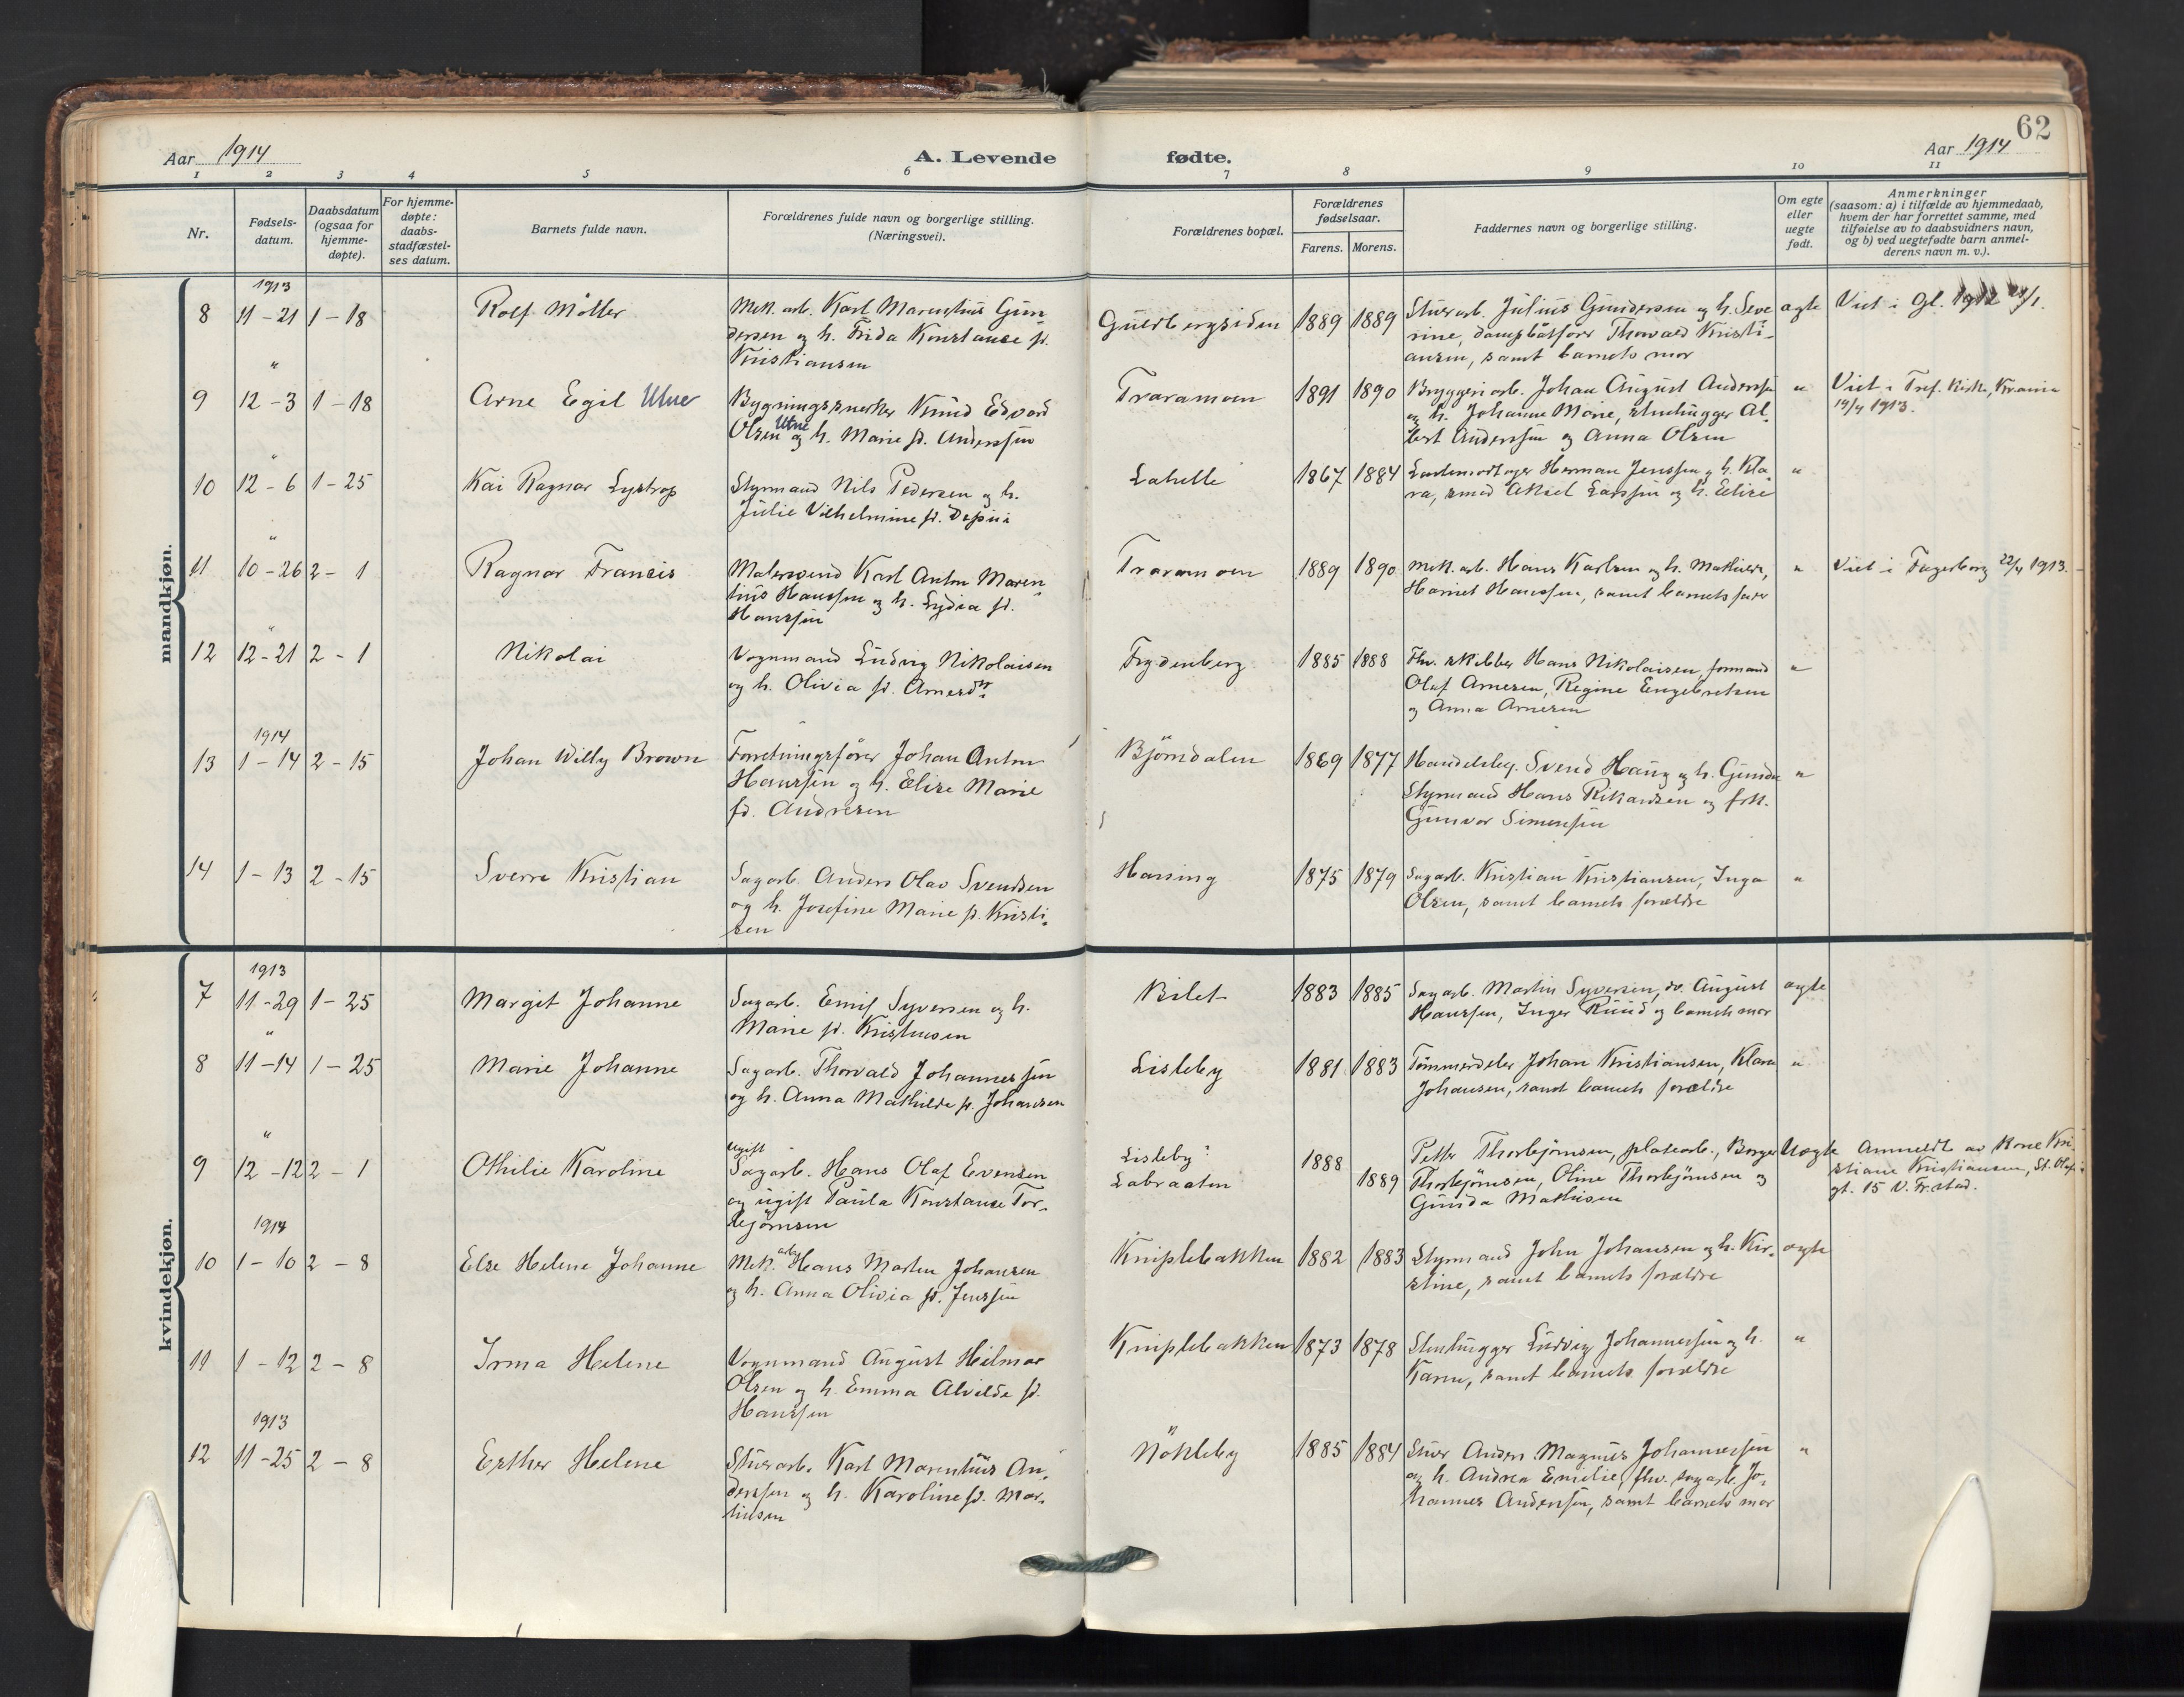 62
Aar 1914
A. Levende
fødte.
Aar 1914
1 2 3 4 5 6 7 8 9 10 11
Nr.
Fødsels-
datum.
Daabsdatum
(ogsaa for
hjemme-
døpte).
For hjemme-
døpte:
daabs-
stadfæstel-
ses datum.
Barnets fulde navn.
Forældrenes fulde navn og borgerlige stilling.
(Næringsvei).
Forældrenes bopæl.
Forældrenes
fødselsaar.
Farens. Morens.
Faddernes navn og borgerlige stilling.
Om egte
eller
uegte
født.
Anmerkninger
(saasom: a) i tilfælde av hjemmedaab,
hvem der har forrettet samme, med
tilføielse av to daabsvidners navn,
og b) ved uegtefødte barn anmel-
derens navn m. v.).
mandkjøn.
1913
8 11-21 1-18
Rolf Möller
Mek. arb. Karl Marentius Gun-
dersen og h. Frida Konstanse f.
Kristiansen
Guldbergsiden 1889 1889
Stuerarb. Julius Gundersen og h. Seve-
rine, dampbåtfører Thorvald Kristi-
ansen, samt barnets mor
ægte
Viet i Gl. 1912
"
9 12-3 1-18
Arne Egil Utne
Bygningssnerker Knud Edvard
Olsen Utne og h. Marie f. Anderssen
Traramoen 1891 1890
Bryggeriarb. Johan August Anderssen
og h. Johanne Marie, stenhugger Al-
bert Anderssen og Anna Olsen
"
Viet i Tref. kirke, Krania
19/4 1913.
"
10 12-6 1-25
Kai Ragnar Lystrop
Styrmand Nils Pedersen og h.
Julie Vilhelmine f.
Lahelle 1867 1884
Herman Jenssen og h. Kla-
ra, smed Aksel Larssen og h. Elise
"
"
11 10-26 2-1
Ragnar Francis
Malersvend Karl Anton Maren-
tius Hanssen og h. Lydia f.
Hanssen
Traramoen 1889 1890
Mek. arb. Hans Karlsen og h. Mathilde,
Harriet Hanssen, samt barnets far
"
Viet i Fagerborg 22/4 1913.
"
12 12-21 2-1
Nikolai
Vognmand Ludvig Nikolaisen
og h. Olivia f. Arnesdtr
Frydenberg 1885 1888
Fhv. skibber Hans Nikolaisen, formand
Olaf Arnesen, Regine Engebretsen
og Anna Arnesen
"
1914
13 1-14 2-15
Johan Willy Brown
Forretningsfører Johan Anton
Hanssen og h. Elise Marie
fd. Andresen
Björndalen 1869 1877
Handelsbet. Svend Haug og h. Gunda
Styrmand Hans Rikardsen og frk.
Gunvor Simonsen
"
14 1-13 2-15
Sverre Kristian
Sagarb. Anders Olav Svendsen
og h. Josefine Marie f. Kristi-
sen
Haining 1875 1879
Sagarb. Kristian Kristiansen, Inga
Olsen, samt barnets forældre
"
kvindekjøn.
1913
7 11-29 1-25
Margit Johanne
Sagarb. Emil Syversen og h.
Marie f. Kristensen
Bilet 1883 1885
Sagarb. Martin Syversen, do. August
Hanssen, Inger Ruud og barnets mor
ægte
"
8 11-14 1-25
Marie Johanne
Sagarb. Thorvald Johannessen
og h. Anna Mathilde f. Johansen
Lisleby 1881 1883
Tömmerdeler Johan Kristiansen, Klara
Johansen, samt barnets forældre
"
"
9 12-12 2-1
Othilie Karoline
Ugift
Sagarb. Hans Olaf Evensen
og ugift Paula Konstanse Tor-
björnsen
Lisleby
Labraaten
1888 1889
Petter Thorbjörnsen, platearb., Borger
Thorbjörnsen, Oline Thorbjörnsen og
Gunda Mathisen
Uægte
Anmeldt av Kone Kri-
stiane Kristiansen, St. Olafs
gt. 15 V. Fr.stad.
1914
10 1-10 2-8
Else Helene Johanne
Mek. arb. Hans Marten Johansen
og h. Anna Olivia fd. Jenssen
Kniplebakken 1882 1883
Styrmand John Johansen og h. Kir-
stine, samt barnets forældre
ægte
11 1-12 2-8
Irma Helene
Vognmand August Hilmar
Olsen og h. Emma Alvilde fd.
Hanssen
Kniplebakken 1873 1878
Stenhugger Ludvig Johannessen og h.
Karen, samt barnets forældre
"
1913
12 11-25 2-8
Esther Helene
Stuerarb. Karl Marentius An-
derssen og h. Karoline fd. Mar-
tinsen
Nökleby 1885 1884
Stuer Anders Magnus Johannessen
og h. Andrea Emilie, fhv. sagarb. Jo-
hannes Anderssen, samt barnets mor
"